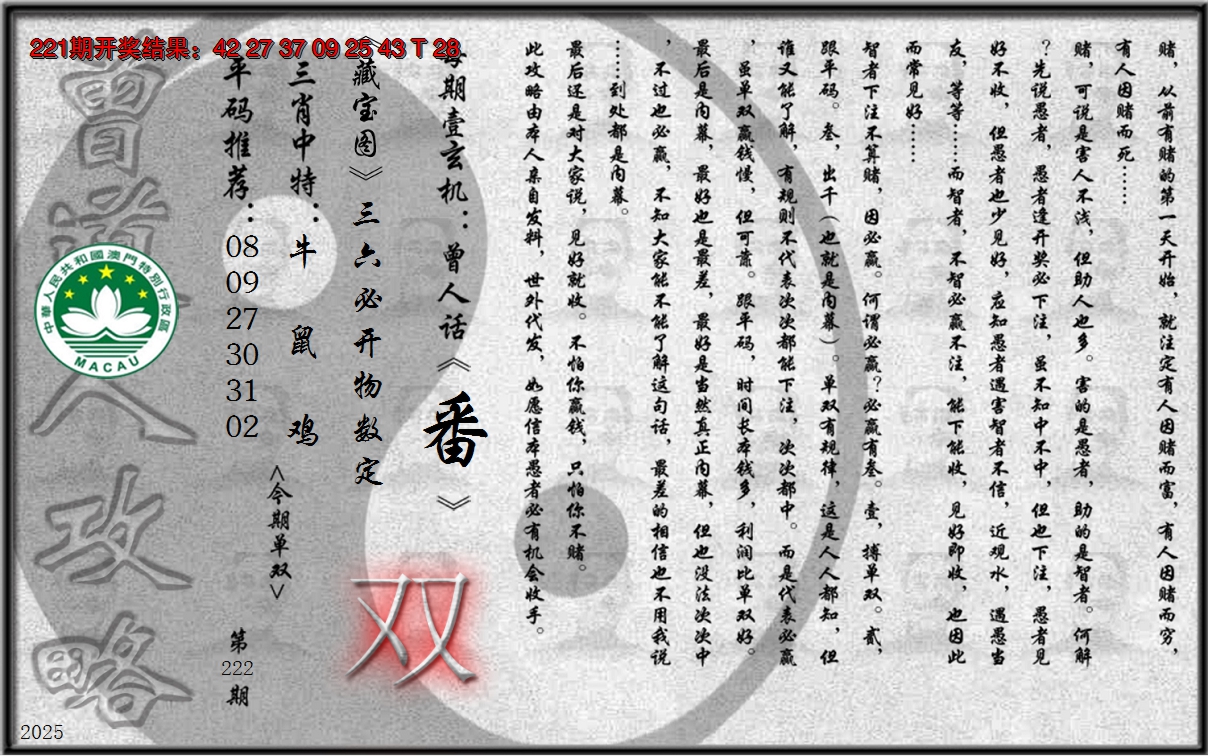 221期开奖结果：42 27 37 09 25 43 T 28
赌，从前有赌的第一天开始，就注定有人因赌而富，有人因赌而穷，
有人因赌而死……
赌，可说是害人不浅，但助人也多。害的是愚者，助的是智者。何解
？先说愚者，愚者逢开奖必下注，虽不知中不中，但也下注，愚者见
好不收，但愚者也少见好，应知愚者遇害智者不信，近观水，遇愚当
友，等等……而智者，不智必赢不注，能下能收，见好即收，也因此
而常见好……
智者下注不算赌，因必赢。何谓必赢？必赢有叁。壹，搏单双。贰，
跟平码。叁，出千（也就是内幕）。单双有规律，这是人人都知，但
谁又能了解，有规则不代表次次都能下注，次次都中。而是代表必赢
，虽单双赢钱慢，但可靠。跟平码，时间长本钱多，利润比单双好。
最后是内幕，最好也是最差，最好是当然真正内幕，但也没法次次中
，不过也必赢，不知大家能不能了解这句话，最差的相信也不用我说
……到处都是内幕。
最后还是对大家说，见好就收。不怕你赢钱，只怕你不赌。
此攻略由本人亲自发料，世外代发，如愿信本愚者必有机会收手。
每期壹玄机：曾人话《番》
《藏宝图》三六必开物数定
双
三肖中特：牛 鼠 鸡
<今期单双>
平码推荐：08 09 27 30 31 02
第222期
曾道人攻略
中華人民共和國澳門特別行政區
MACAU
2025